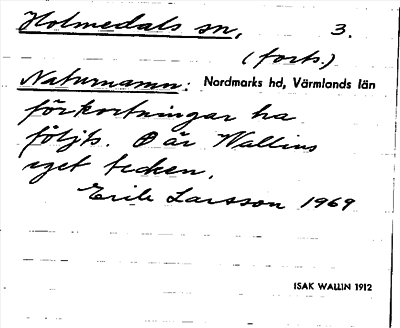 Holmedals sn, 3.
(forts.)
Naturnamn: Nordmarks hd, Värmlands län
förkortningar ha
följts. ⊕ är Wallins
eget tecken.
Erik Larsson 1969
ISAK WALLIN 1912